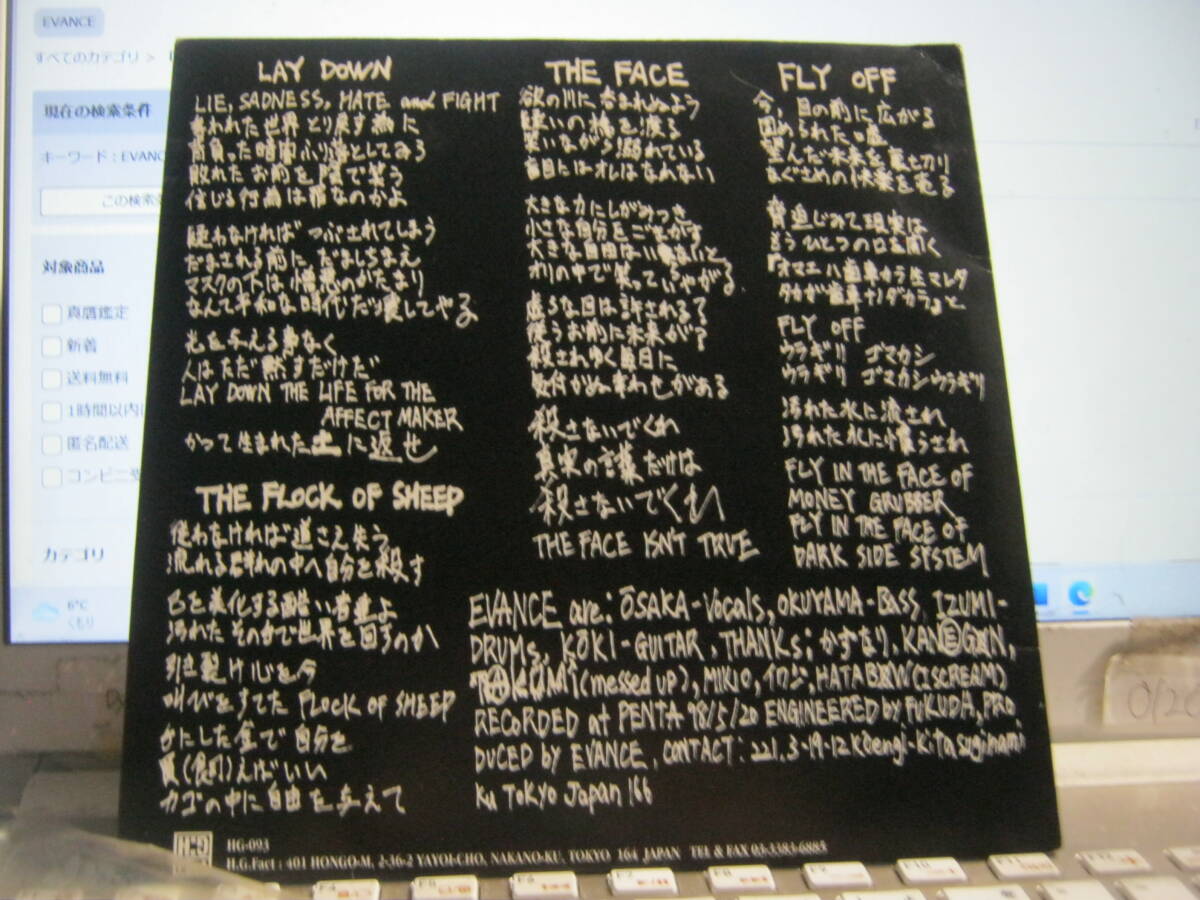 EVANCE
すべてのカテゴリ >
現在の検索条件
キーワード：EVANC
この検索
対象商品
真贋鑑定
新着
送料無料
1時間以内
匿名配送
コンビニ受
カテゴリ
6°C
くもり
LAY DOWN
LIE, SADNESS, HATE and FIGHT
奪われた世界とり戻す為に
背負った時間ふり落としてみろ
敗れたお前を陰で笑う
信じる行為は罪なのかよ
疑わなければ つぶされてしまう
だまされる前に だましちまえ
マスクの下は憎悪のかたまり
なんて平和な時代だ壊してやる
光を与える事なく
人はただ黙すだけだ
LAY DOWN THE LIFE FOR THE
AFFECT MAKER
かつて生まれた土に返せ
THE FLOCK OF SHEEP
従わなければ道さえ失う
流れる群れの中へ自分を殺す
己を美化する酷い者達よ
汚れたその力で世界を回すのか
引き裂け心を今
叫べをすてた FLOCK OF SHEEP
手にした金で自分を
買(飼)えばいい
カゴの中に自由を与えて
THE FACE
欲の川に呑まれぬよう
疑いの橋を渡る
笑いながら溺れている
盲目にはオレはなれない
大きな力にしがみつき
小さな自分をごまかす
大きな自由はいらないと
オリの中で笑っていやがる
虚ろな目は許される?
従うお前に未来が?
殺されゆく毎日に
気付かぬ幸わせがある
殺さないでくれ
真実の言葉だけは
殺さないでくれ
THE FACE ISN'T TRUE
FLY OFF
今、目の前に広がる
固められた嘘
望んだ未来を裏切り
なぐさめの快楽を売る
脅迫じみて現実は
もうひとつの口を開く
『オマエハ歯車カラ生マレタ
タカガ歯車ナノダカラ』と
FLY OFF
ウラギリ ゴマカシ
ウラギリ ゴマカシウラギリ
汚れた水に流され
汚れた水に慣らされ
FLY IN THE FACE OF
MONEY GRUBBER
FLY IN THE FACE OF
DARK SIDE SYSTEM
EVANCE are: ŌSAKA-Vocals, OKUYAMA-Bass, IZUMI-
DRUMS, KŌKI-GUITAR, THANKS; かずなり, KANEGON,
TAKUMI (messed up), MIKIO, イワジ, HATABOW (ISCREAM)
RECORDED at PENTA 98/5/20 ENGINEERED by FUKUDA, PRO
DUCED by EVANCE, CONTACT: 221. 3-19-12 Koengi-Kita suginami
Ku TOKYO Japan 166
HG-093
H.G.Fact : 401 HONGO-M, 2-36-2 YAYOI-CHO, NAKANO-KU, TOKYO 164 JAPAN TEL & FAX 03-3383-6885